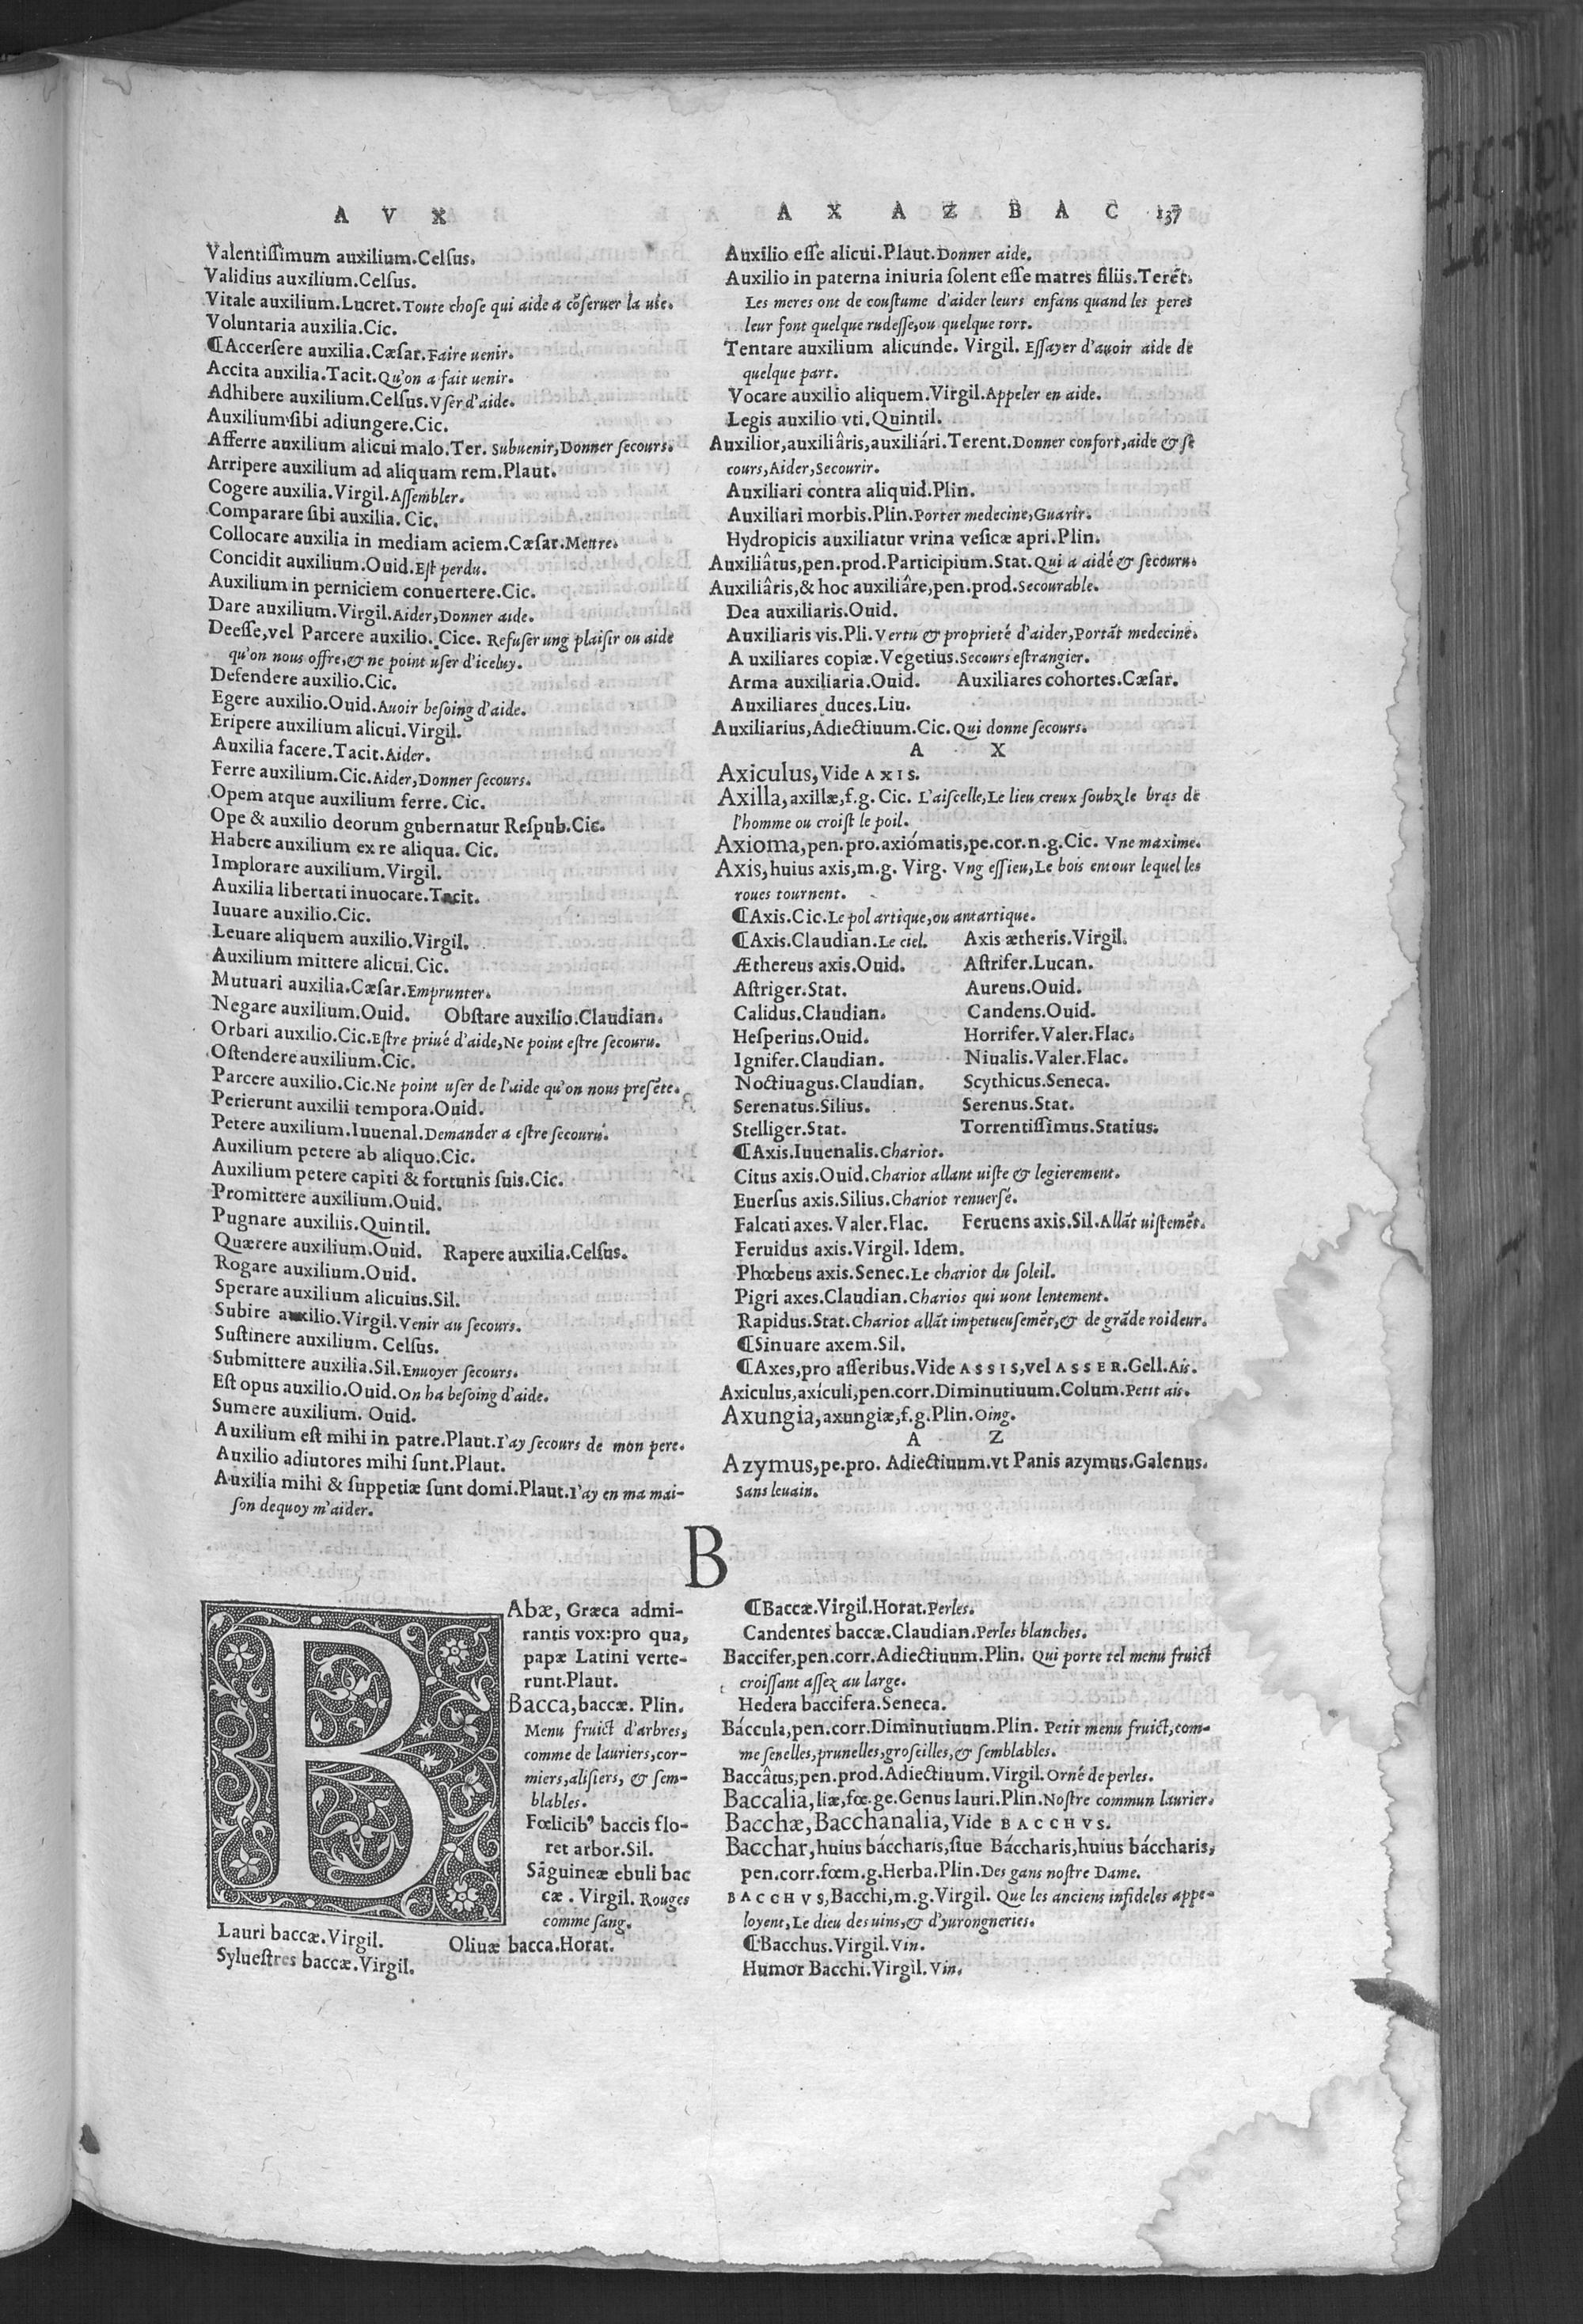 A V X
A X A Z B A C 137
Valentiſſimum auxilium.Celſus.
Validius auxilium.Celſus.
Vitale auxilium.Lucret.Toute choſe qui aide a cõſeruer la uie.
Voluntaria auxilia.Cic.
¶Accerſere auxilia.Cæſar.Faire uenir.
Accita auxilia.Tacit.Qu'on a fait uenir.
Adhibere auxilium.Celſus.Vſer d'aide.
Auxilium ſibi adiungere.Cic.
Afferre auxilium alicui malo.Ter. Subuenir,Donner ſecours.
Arripere auxilium ad aliquam rem.Plaut.
Cogere auxilia.Virgil.Aſſembler.
Comparare ſibi auxilia. Cic.
Collocare auxilia in mediam aciem.Cæſar.Mettre.
Concidit auxilium.Ouid.Eſt perdu.
Auxilium in perniciem conuertere.Cic.
Dare auxilium.Virgil.Aider,Donner aide.
Deeſſe,vel Parcere auxilio. Cice. Refuſer ung plaiſir ou aide
qu'on nous offre,& ne point uſer d'iceluy.
Defendere auxilio.Cic.
Egere auxilio.Ouid.Auoir beſoing d'aide.
Eripere auxilium alicui.Virgil.
Auxilia facere.Tacit.Aider.
Ferre auxilium.Cic.Aider,Donner ſecours.
Opem atque auxilium ferre. Cic.
Ope & auxilio deorum gubernatur Reſpub.Cic.
Habere auxilium ex re aliqua. Cic.
Implorare auxilium.Virgil.
Auxilia libertati inuocare.Tacit.
Iuuare auxilio.Cic.
Leuare aliquem auxilio.Virgil.
Auxilium mittere alicui.Cic.
Mutuari auxilia.Cæſar.Emprunter.
Negare auxilium.Ouid. Obſtare auxilio.Claudian.
Orbari auxilio.Cic.Eſtre priué d'aide,Ne point eſtre ſecouru.
Oſtendere auxilium.Cic.
Parcere auxilio.Cic.Ne point uſer de l'aide qu'on nous preſẽte.
Perierunt auxilii tempora.Ouid.
Petere auxilium.Iuuenal.Demander a eſtre ſecouru.
Auxilium petere ab aliquo.Cic.
Auxilium petere capiti & fortunis ſuis.Cic.
Promittere auxilium.Ouid.
Pugnare auxiliis.Quintil.
Quærere auxilium.Ouid. Rapere auxilia.Celſus.
Rogare auxilium.Ouid.
Sperare auxilium alicuius.Sil.
Subire auxilio.Virgil.Venir au ſecours.
Suſtinere auxilium. Celſus.
Submittere auxilia.Sil.Enuoyer ſecours.
Eſt opus auxilio.Ouid.On ha beſoing d'aide.
Sumere auxilium. Ouid.
Auxilium eſt mihi in patre.Plaut.I'ay ſecours de mon pere.
Auxilio adiutores mihi ſunt.Plaut.
Auxilia mihi & ſuppetiæ ſunt domi.Plaut.I'ay en ma mai-
ſon dequoy m'aider.
Auxilio eſſe alicui.Plaut.Donner aide.
Auxilio in paterna iniuria ſolent eſſe matres filiis.Terẽt.
Les meres ont de couſtume d'aider leurs enfans quand les peres
leur font quelque rudeſſe,ou quelque tort.
Tentare auxilium alicunde. Virgil. Eſſayer d'auoir aide de
quelque part.
Vocare auxilio aliquem.Virgil.Appeler en aide.
Legis auxilio vti.Quintil.
Auxilior,auxiliâris,auxiliári.Terent.Donner confort,aide & ſe
cours,Aider,Secourir.
Auxiliari contra aliquid.Plin.
Auxiliari morbis.Plin.Porter medecine,Guarir.
Hydropicis auxiliatur vrina veſicæ apri.Plin.
Auxiliâtus,pen.prod.Participium.Stat.Qui a aidé & ſecouru.
Auxiliâris,& hoc auxiliâre,pen.prod.Secourable.
Dea auxiliaris.Ouid.
Auxiliaris vis.Pli.Vertu & proprieté d'aider,Portãt medecine.
A uxiliares copiæ.Vegetius.Secours eſtrangier.
Arma auxiliaria.Ouid. Auxiliares cohortes.Cæſar.
Auxiliares duces.Liu.
Auxiliarius,Adiectiuum.Cic.Qui donne ſecours.
A X
Axiculus,Vide AXIS.
Axilla,axillæ,f.g. Cic. L'aiſcelle,Le lieu creux ſoubz le bras de
l'homme ou croiſt le poil.
Axioma,pen.pro.axiómatis,pe.cor.n.g.Cic. Vne maxime.
Axis,huius axis,m.g. Virg. Vng eſſieu,Le bois entour lequel les
roues tournent.
¶Axis.Cic.Le pol artique,ou antartique.
¶Axis.Claudian.Le ciel. Axis ætheris.Virgil.
Æthereus axis.Ouid. Aſtrifer.Lucan.
Aſtriger.Stat. Aureus.Ouid.
Calidus.Claudian. Candens.Ouid.
Heſperius.Ouid. Horrifer.Valer.Flac.
Ignifer.Claudian. Niualis.Valer.Flac.
Noctiuagus.Claudian. Scythicus.Seneca.
Serenatus.Silius. Serenus.Stat.
Stelliger.Stat. Torrentiſſimus.Statius.
¶Axis.Iuuenalis.Chariot.
Citus axis.Ouid.Chariot allant uiſte & legierement.
Euerſus axis.Silius.Chariot renuerſé.
Falcati axes.Valer.Flac. Feruens axis.Sil.Allãt uiſtemẽt.
Feruidus axis.Virgil. Idem.
Phœbeus axis.Senec.Le chariot du ſoleil.
Pigri axes.Claudian.Charios qui uont lentement.
Rapidus.Stat.Chariot allãt impetueuſemẽt,& de grãde roideur.
¶Sinuare axem.Sil.
¶Axes,pro aſſeribus.Vide ASSIS,vel ASSER.Gell.Ais.
Axiculus,axículi,pen.corr.Diminutiuum.Colum.Petit ais.
Axungia,axungiæ,f.g.Plin.Oing.
A Z
Azymus,pe.pro. Adiectiuum.vt Panis azymus.Galenus.
Sans leuain.
B
BAbæ, Græca admi-
rantis vox:pro qua,
papæ Latini verte-
runt.Plaut.
Bacca,baccæ. Plin.
Menu fruict d'arbres,
comme de lauriers,cor-
miers,aliſiers, & ſem-
blables.
Fœlicibꝰ baccis flo-
ret arbor.Sil.
Sãguineæ ebuli bac
cæ . Virgil. Rouges
comme ſang.
Lauri baccæ.Virgil. Oliuæ bacca.Horat.
Sylueſtres baccæ.Virgil.
¶Baccæ.Virgil.Horat.Perles.
Candentes baccæ.Claudian.Perles blanches.
Baccifer,pen.corr.Adiectiuum.Plin. Qui porte tel menu fruict
croiſſant aſſez au large.
Hedera baccifera.Seneca.
Báccula,pen.corr.Diminutiuum.Plin. Petit menu fruict,com-
me ſenelles,prunelles,groſeilles,& ſemblables.
Baccâtus,pen.prod.Adiectiuum.Virgil.Orné de perles.
Baccalia,liæ,fœ.ge.Genus lauri.Plin.Noſtre commun laurier.
Bacchæ,Bacchanalia,Vide BACCHVS.
Bacchar,huius báccharis,ſiue Báccharis,huius báccharis,
pen.corr.fœm.g.Herba.Plin.Des gans noſtre Dame.
BACCHVS,Bacchi,m.g.Virgil. Que les anciens infideles appe-
loyent,Le dieu des uins,& d'yurongneries.
¶Bacchus.Virgil.Vin.
Humor Bacchi.Virgil.Vin.